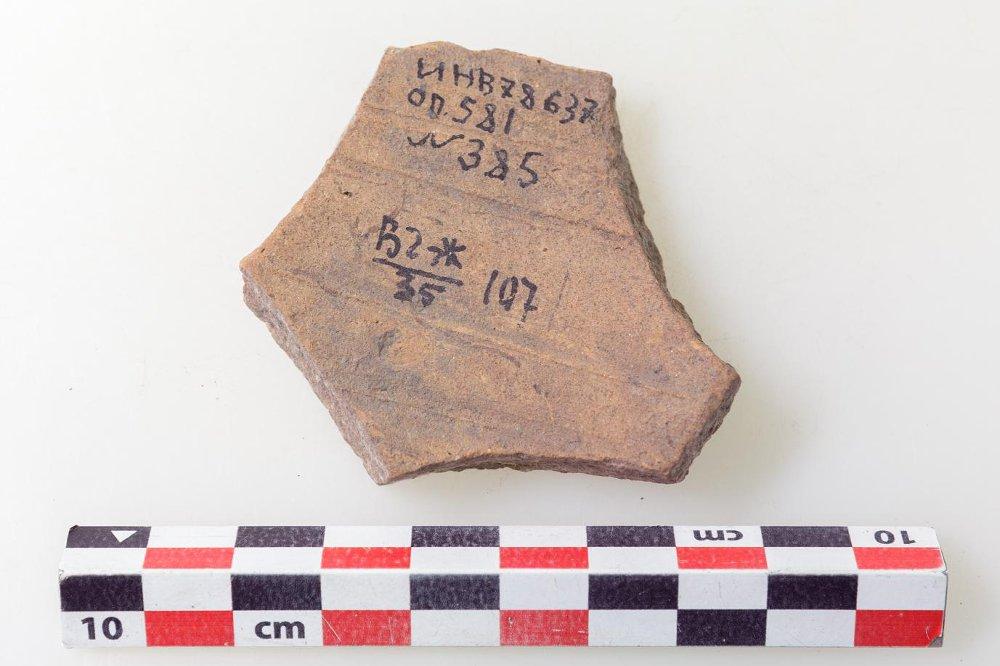 ИНВ78637
ОП.581
N385
В2-Ж 107
35
cm
10
10
cm